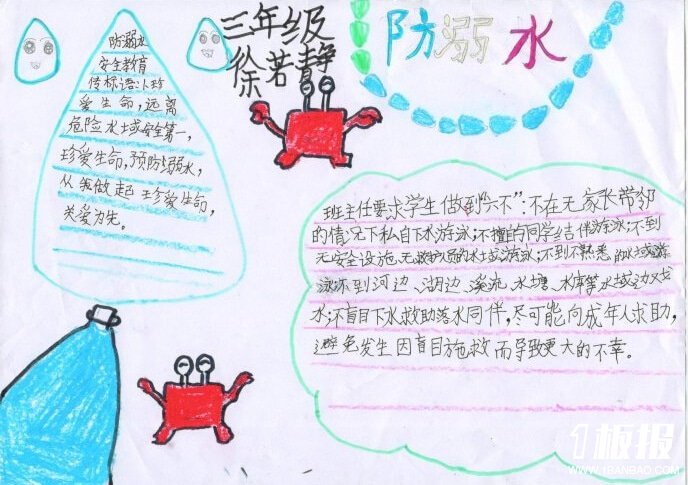 三年级
徐若静
防溺水
防溺水
安全教育
传标语:1、珍
爱生命,远离
危险水域安全第一,
珍爱生命,预防溺水,
从我做起 珍爱生命,
关爱为先。
班主任要求学生做到"六不":不在无家长带邻
的情况下私自下水游泳;不擅自同学结伴游泳;不到
无安全设施、无救护人员的水域游泳;不到不熟悉的水域游
泳;不到河边、湖边、溪流、水塘、水库等水域边戏
水;不盲目下水救助落水同伴,尽可能向成年人求助,
避免发生因盲目施救而导致更大的不幸。
1板报
WWW.1BANBAO.COM